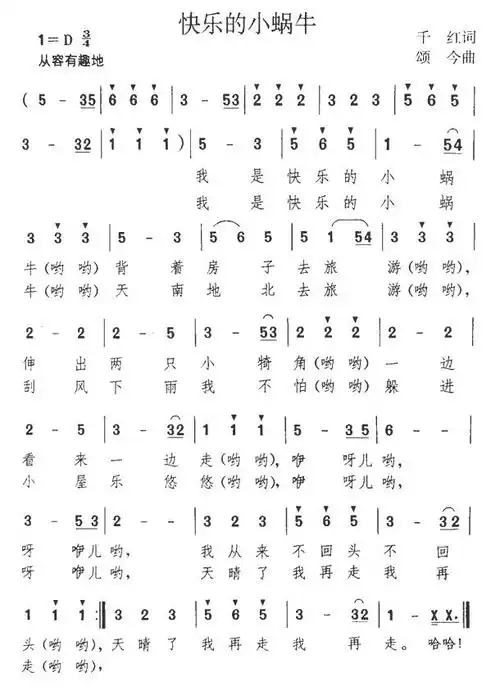 快乐的小蜗牛
1=D 3/4
千 红词
从容有趣地
颂 今曲
( 5 - 35 | 6 6 6 | 3 - 53 | 2 2 2 | 3 2 3 | 5 6 5 |
3 - 32 | 1 1 1 ) | 5 - 3 | 5 6 5 | 1 - 54 |
我 是 快 乐 的 小 蜗
我 是 快 乐 的 小 蜗
3 3 3 | 5 - 3 | 5 6 5 | 5 1 54 | 3 3 3 |
牛(哟 哟) 背 着 房 子 去 旅 游(哟 哟),
牛(哟 哟) 天 南 地 北 去 旅 游(哟 哟),
2 - 2 | 5 - 2 | 3 - 53 | 2 2 2 | 1 - 2 |
伸 出 两 只 小 犄 角(哟 哟) 一 边
刮 风 下 雨 我 不 怕(哟 哟) 躲 进
2 - 5 | 3 - 32 | 1 1 1 | 5 - 35 | 6 - - |
看 来 一 边 走(哟 哟), 咿 呀儿 哟,
小 屋 乐 悠 悠(哟 哟), 咿 呀儿 哟,
3 - 53 | 2 - - | 3 2 3 | 5 6 5 | 3 - 32 |
呀 咿儿 哟, 我 从 来 不 回 头 不 回
呀 咿儿 哟, 天 晴 了 我 再 走 我 再
1 1 1 :| 3 2 3 | 5 6 5 | 3 - 32 | 1 - X X. ‖
头(哟 哟), 天 晴 了 我 再 走 我 再 走。 哈哈!
走(哟 哟),